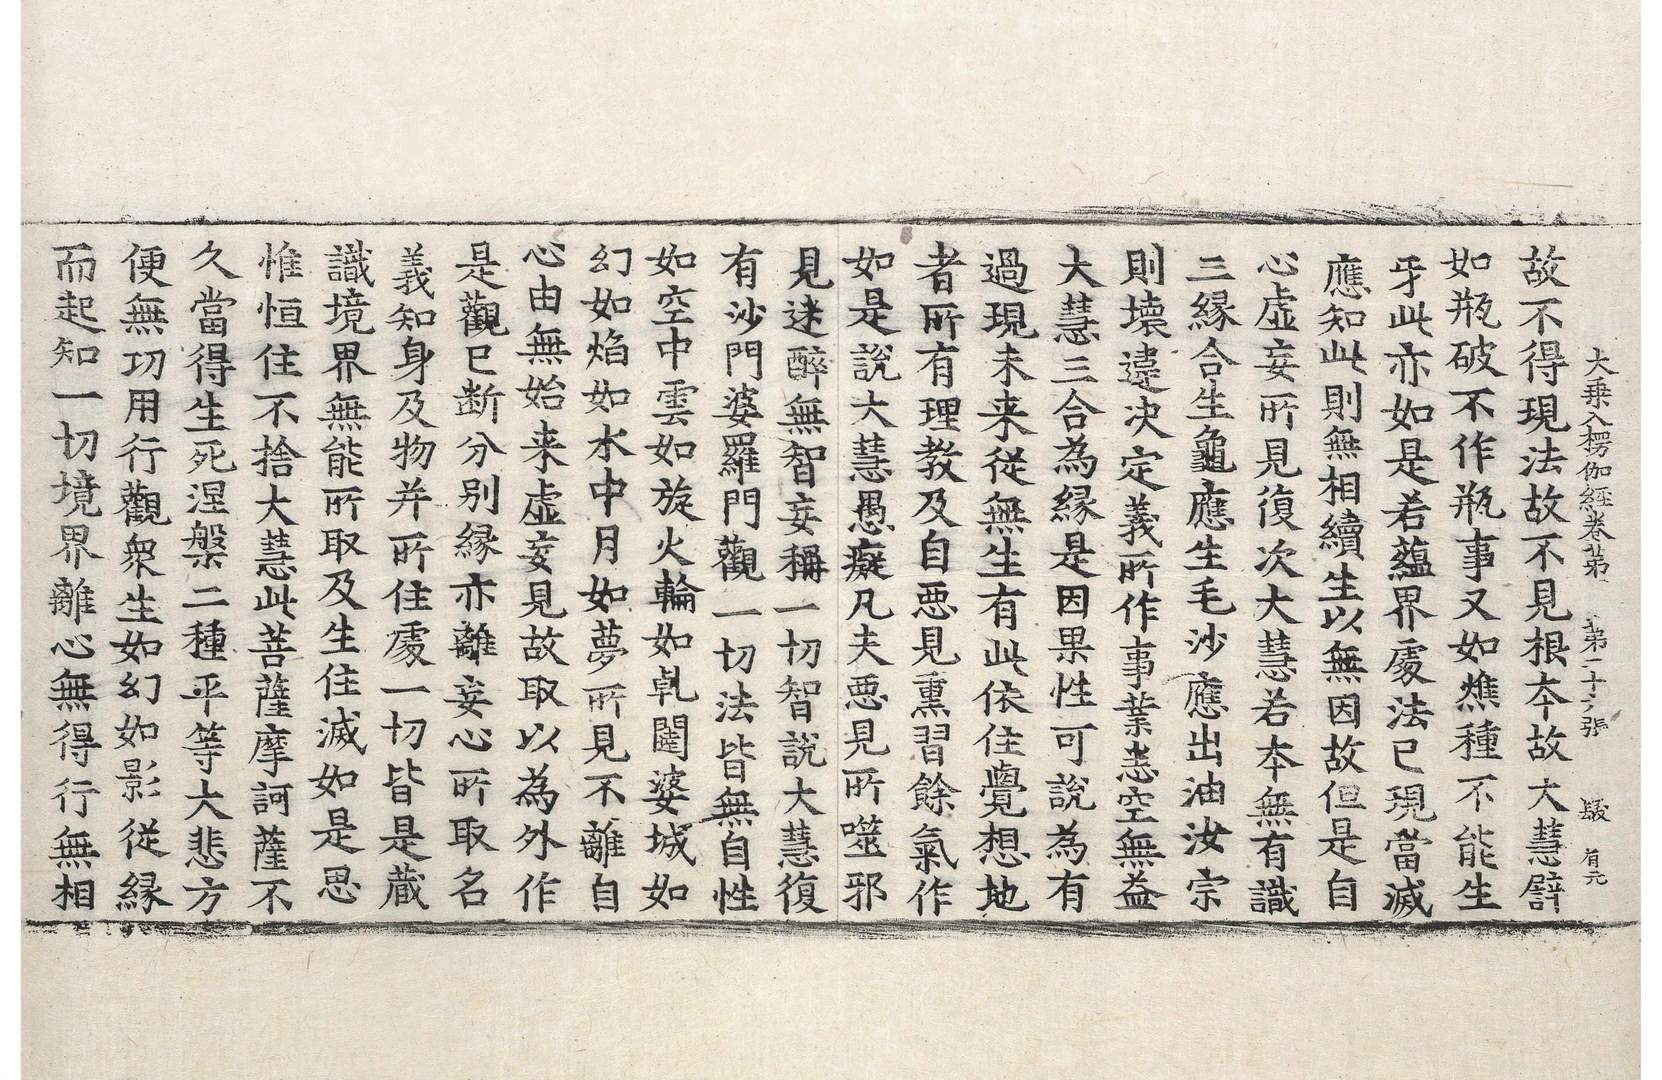 大乗入楞伽經卷苐 苐二十六張 㱾 有元
故不得現法故不見根夲故大慧譬
如瓶破不作瓶事又如燋種不能生
牙此亦如是若蘊界處法已現當滅
應知此則無相續生以無因故但是自
心虛妄所見復次大慧若夲無有識
三縁合生龜應生毛沙應出油汝宗
則壞違决定義所作事業悉空無益
大慧三合為縁是因果性可說為有
過現未来從無生有此依住覺想地
者所有理教及自悪見熏習餘氣作
如是說大慧愚癡凡夫悪見所噬邪
見迷醉無智妄稱一切智說大慧復
有沙門婆羅門觀一切法皆無自性
如空中雲如旋火輪如乹闥婆城如
幻如焰如水中月如夢所見不離自
心由無始来虛妄見故取以為外作
是觀已断分別縁亦離妄心所取名
義知身及物并所住處一切皆是蔵
識境界無能所取及生住滅如是思
惟恒住不捨大慧此菩薩摩訶薩不
久當得生死涅槃二種平等大悲方
便無功用行觀衆生如幻如影從縁
而起知一切境界離心無得行無相